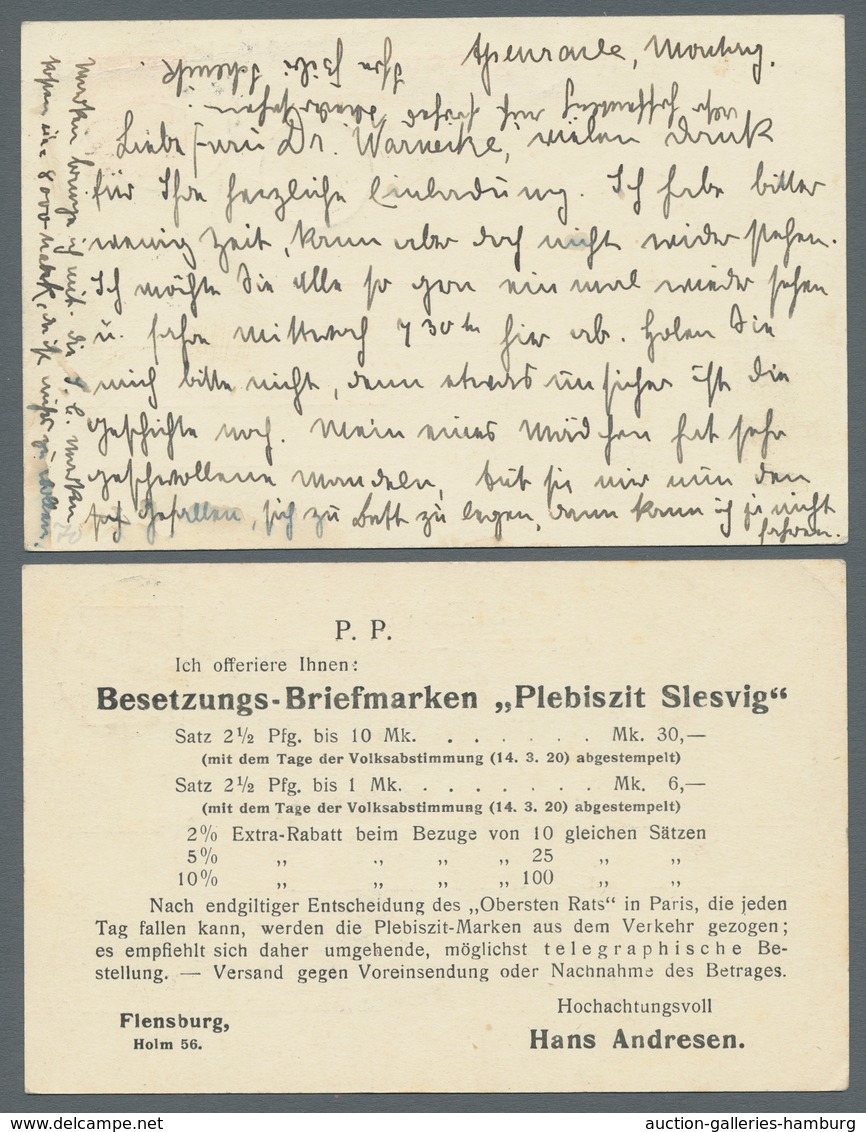 Apenrade, Montag.
Liebe Frau Dr. Warnecke, vielen Dank
für Ihre herzliche Einladung. Ich habe bitter
wenig Zeit, kann aber doch nicht widerstehen.
Ich möchte Sie alle so gern einmal wieder sehen
u. fahre Mittwoch 7 30 hier ab. Holen Sie
mich bitte nicht, denn etwas unsicher ist die
Geschichte noch. Mein eines Mädchen hat sehr
geschwollene Mandeln, tut sie mir nun den
Gefallen, sich zu Bett zu legen, dann kann ich ja nicht
fahren.
Marken bringe ich mit. die Marken
8000 Mark, nicht zu wollen.
Ihre
P. P.
Ich offeriere Ihnen:
Besetzungs-Briefmarken „Plebiszit Slesvig“
Satz 2½ Pfg. bis 10 Mk. . . . . . . Mk. 30,—
(mit dem Tage der Volksabstimmung (14. 3. 20) abgestempelt)
Satz 2½ Pfg. bis 1 Mk. . . . . . . . Mk. 6,—
(mit dem Tage der Volksabstimmung (14. 3. 20) abgestempelt)
2% Extra-Rabatt beim Bezuge von 10 gleichen Sätzen
5% „ „ „ „ 25 „ „
10% „ „ „ „ 100 „ „
Nach endgiltiger Entscheidung des „Obersten Rats“ in Paris, die jeden
Tag fallen kann, werden die Plebiszit-Marken aus dem Verkehr gezogen;
es empfiehlt sich daher umgehende, möglichst telegraphische Be-
stellung. — Versand gegen Voreinsendung oder Nachnahme des Betrages.
Hochachtungsvoll
Flensburg,
Holm 56.
Hans Andresen.
auction-galleries-hamburg